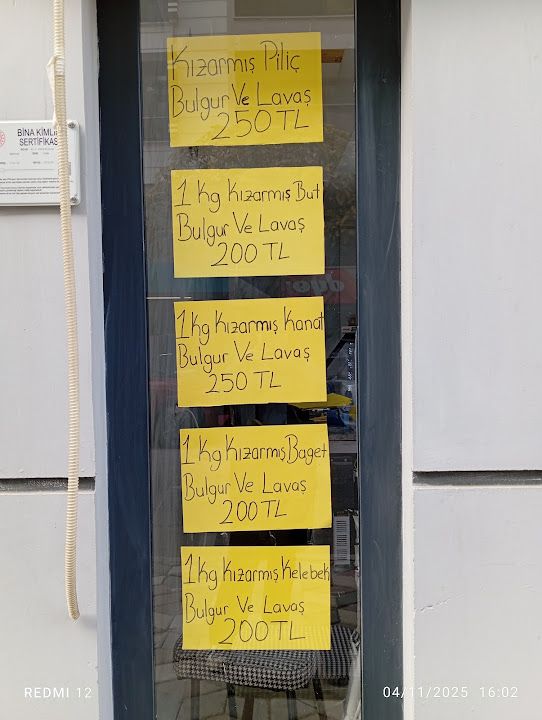 Kızarmış Piliç
Bulgur Ve Lavaş
250 TL
BİNA KİMLİ
SERTİFİKAS
1 Kg Kızarmış But
Bulgur Ve Lavaş
200 TL
1 Kg Kızarmış Kanat
Bulgur Ve Lavaş
250 TL
1 Kg Kızarmış Baget
Bulgur Ve Lavaş
200 TL
1 Kg Kızarmış Kelebek
Bulgur Ve Lavaş
200 TL
REDMI 12
04/11/2025 16:02